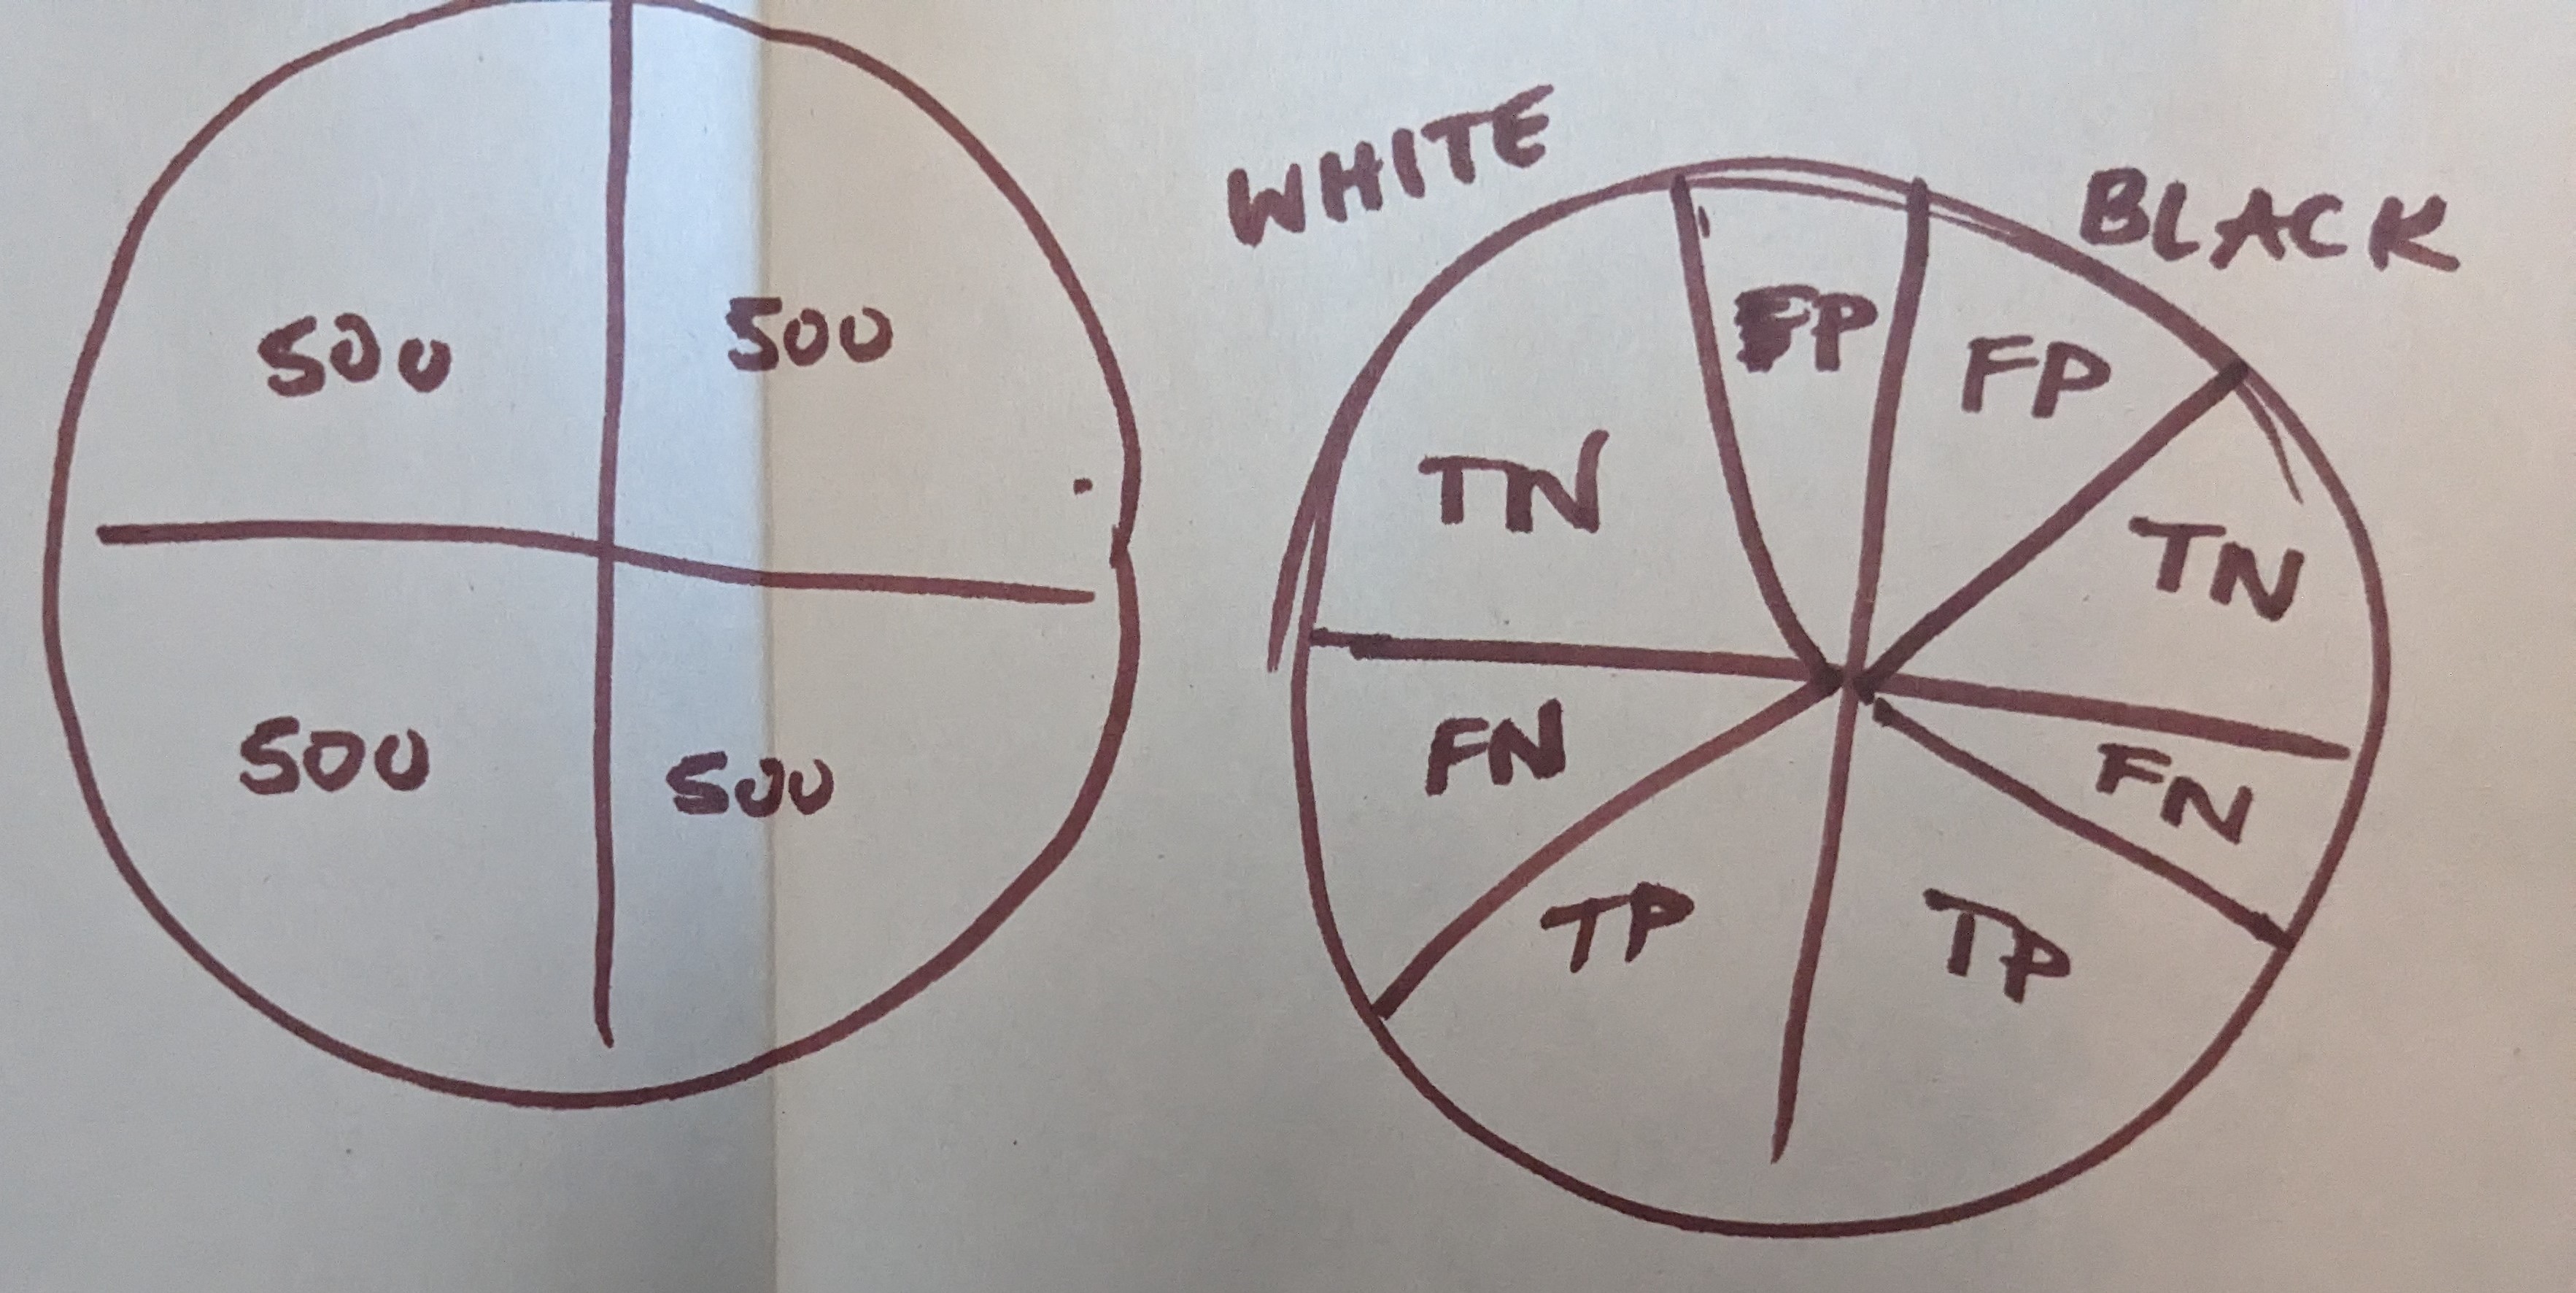 500 500
500 500
WHITE BLACK
FP FP
TN TN
FN FN
TP TP